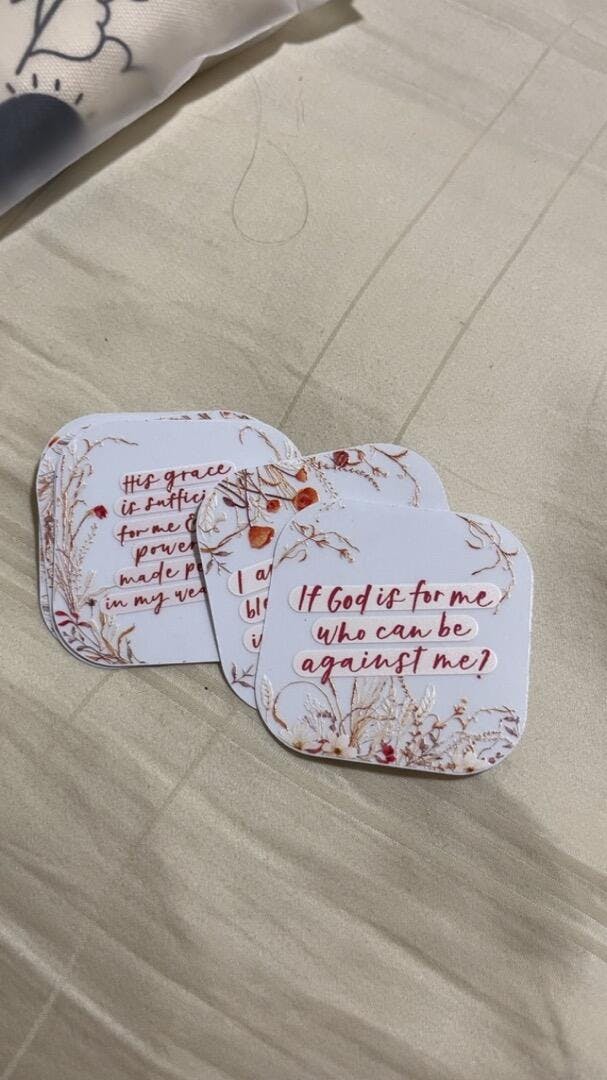 His grace
is suffici
for me
power
made pe
in my wea
I a
ble
i
If God is for me
who can be
against me?